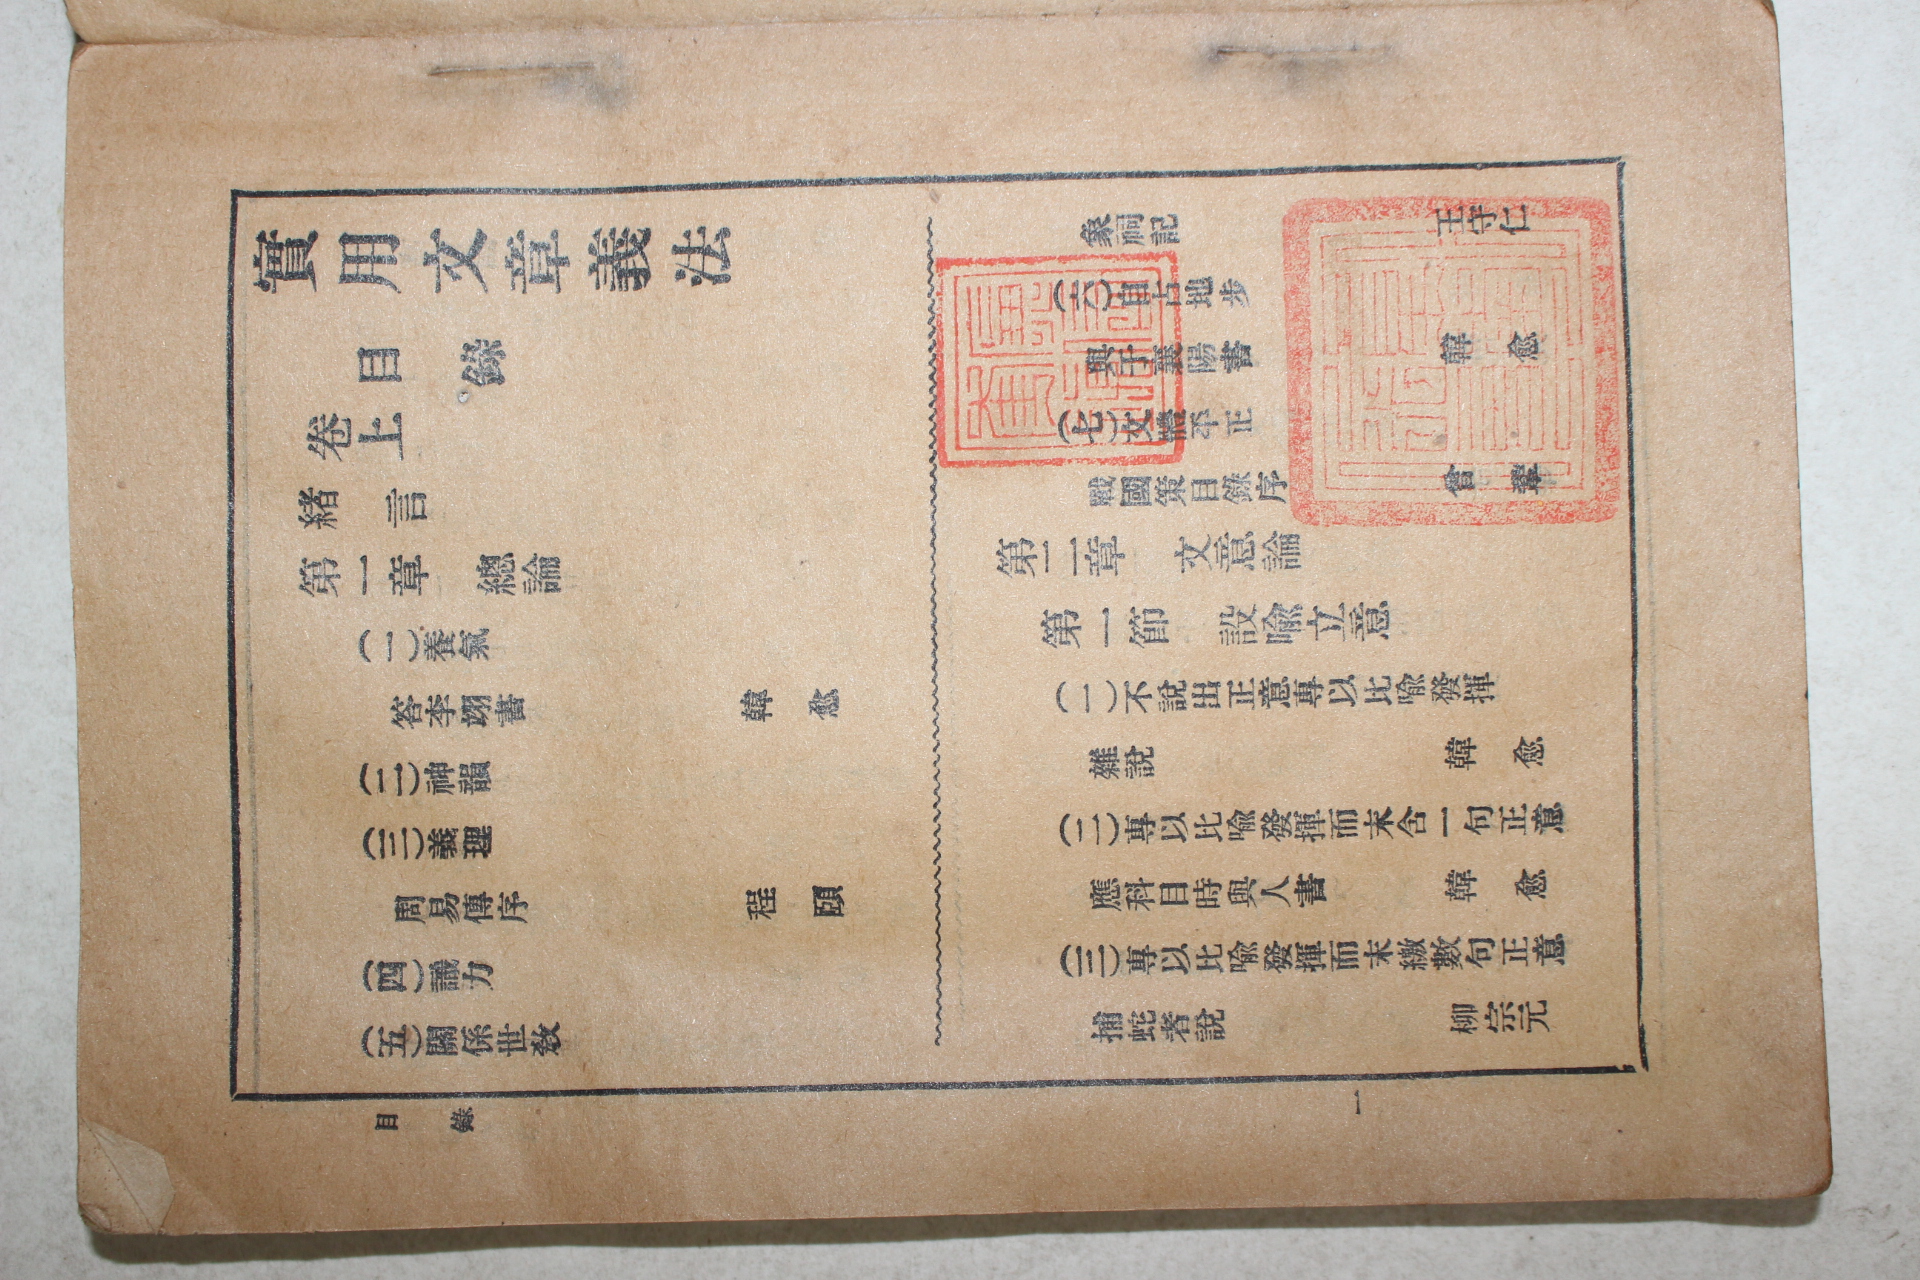 實用文章義法
目錄
卷上
緒言
第一章 總論
(一)養氣
答李翊書 韓愈
(二)神韻
(三)義理
周易傳序 程頤
(四)識力
(五)關係世教
象祠記 王守仁
(六)自占地步
與于襄陽書 韓愈
(七)文體平正
戰國策目錄序 曾鞏
第二章 文意論
第一節 設喻立意
(一)不說出正意專以比喻發揮
雜說 韓愈
(二)專以比喻發揮而末含一句正意
應科目時與人書 韓愈
(三)專以比喻發揮而末繳數句正意
捕蛇者說 柳宗元
目錄
一